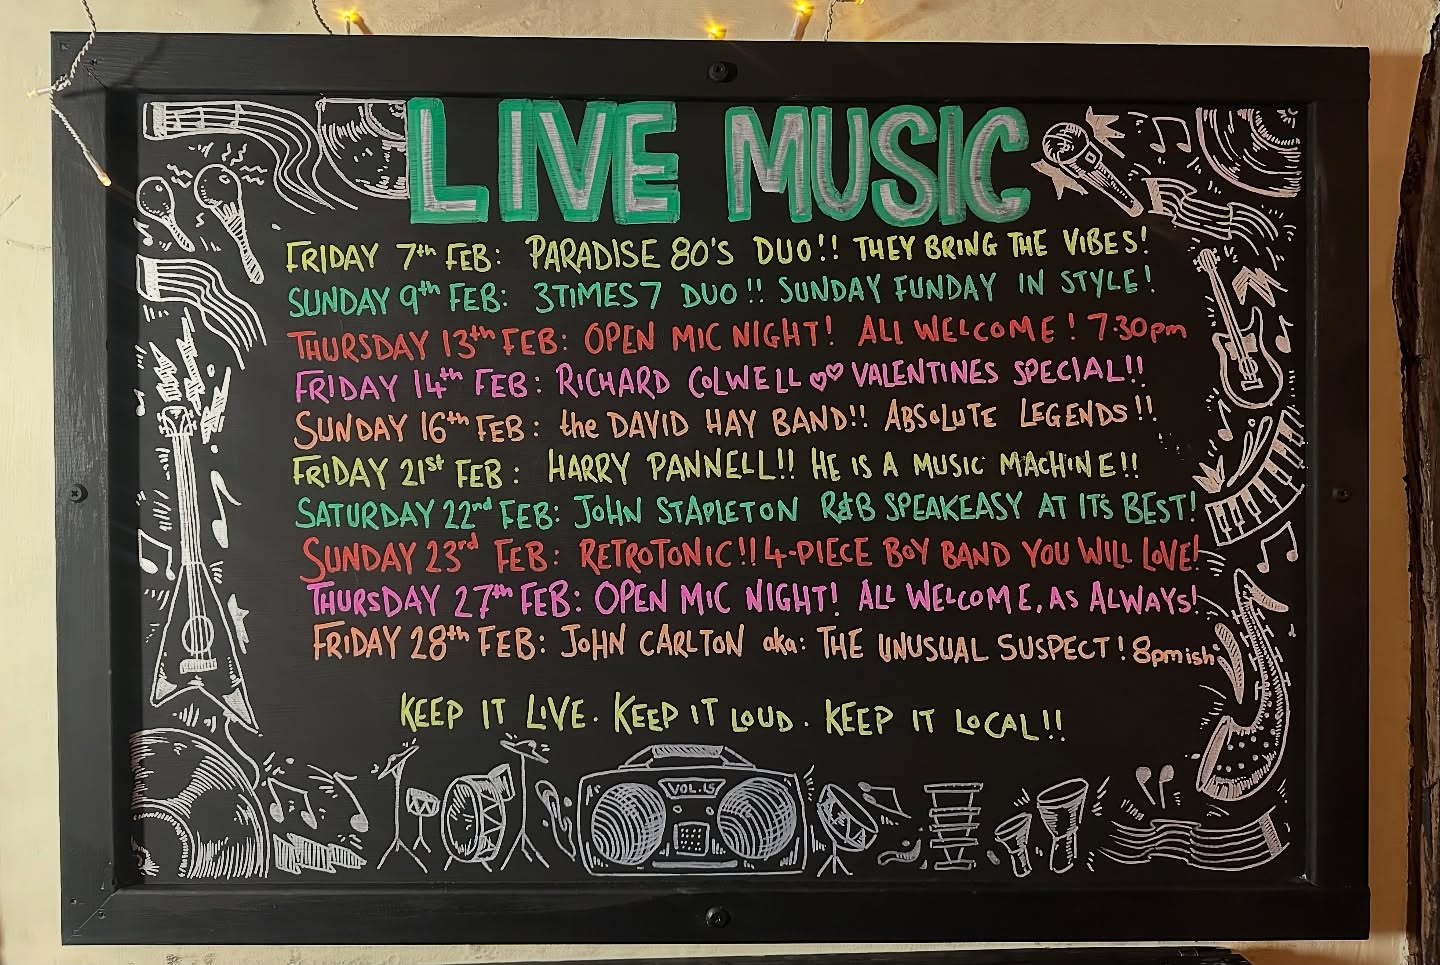 LIVE MUSIC
FRIDAY 7th FEB: PARADISE 80'S DUO!! THEY BRING THE VIBES!
SUNDAY 9th FEB: 3TIMES7 DUO!! SUNDAY FUNDAY IN STYLE!
THURSDAY 13th FEB: OPEN MIC NIGHT! ALL WELCOME! 7.30pm
FRIDAY 14th FEB: RICHARD COLWELL ♡♡ VALENTINES SPECIAL!!
SUNDAY 16th FEB: the DAVID HAY BAND!! ABSOLUTE LEGENDS!!
FRIDAY 21st FEB: HARRY PANNELL!! HE IS A MUSIC MACHINE!!
SATURDAY 22nd FEB: JOHN STAPLETON R&B SPEAKEASY AT IT'S BEST!
SUNDAY 23rd FEB: RETROTONIC!! 4-PIECE BOY BAND YOU WILL LOVE!
THURSDAY 27th FEB: OPEN MIC NIGHT! ALL WELCOME, AS ALWAYS!
FRIDAY 28th FEB: JOHN CARLTON aka: THE UNUSUAL SUSPECT! 8pmish
KEEP IT LIVE. KEEP IT LOUD. KEEP IT LOCAL!!
VOL.15